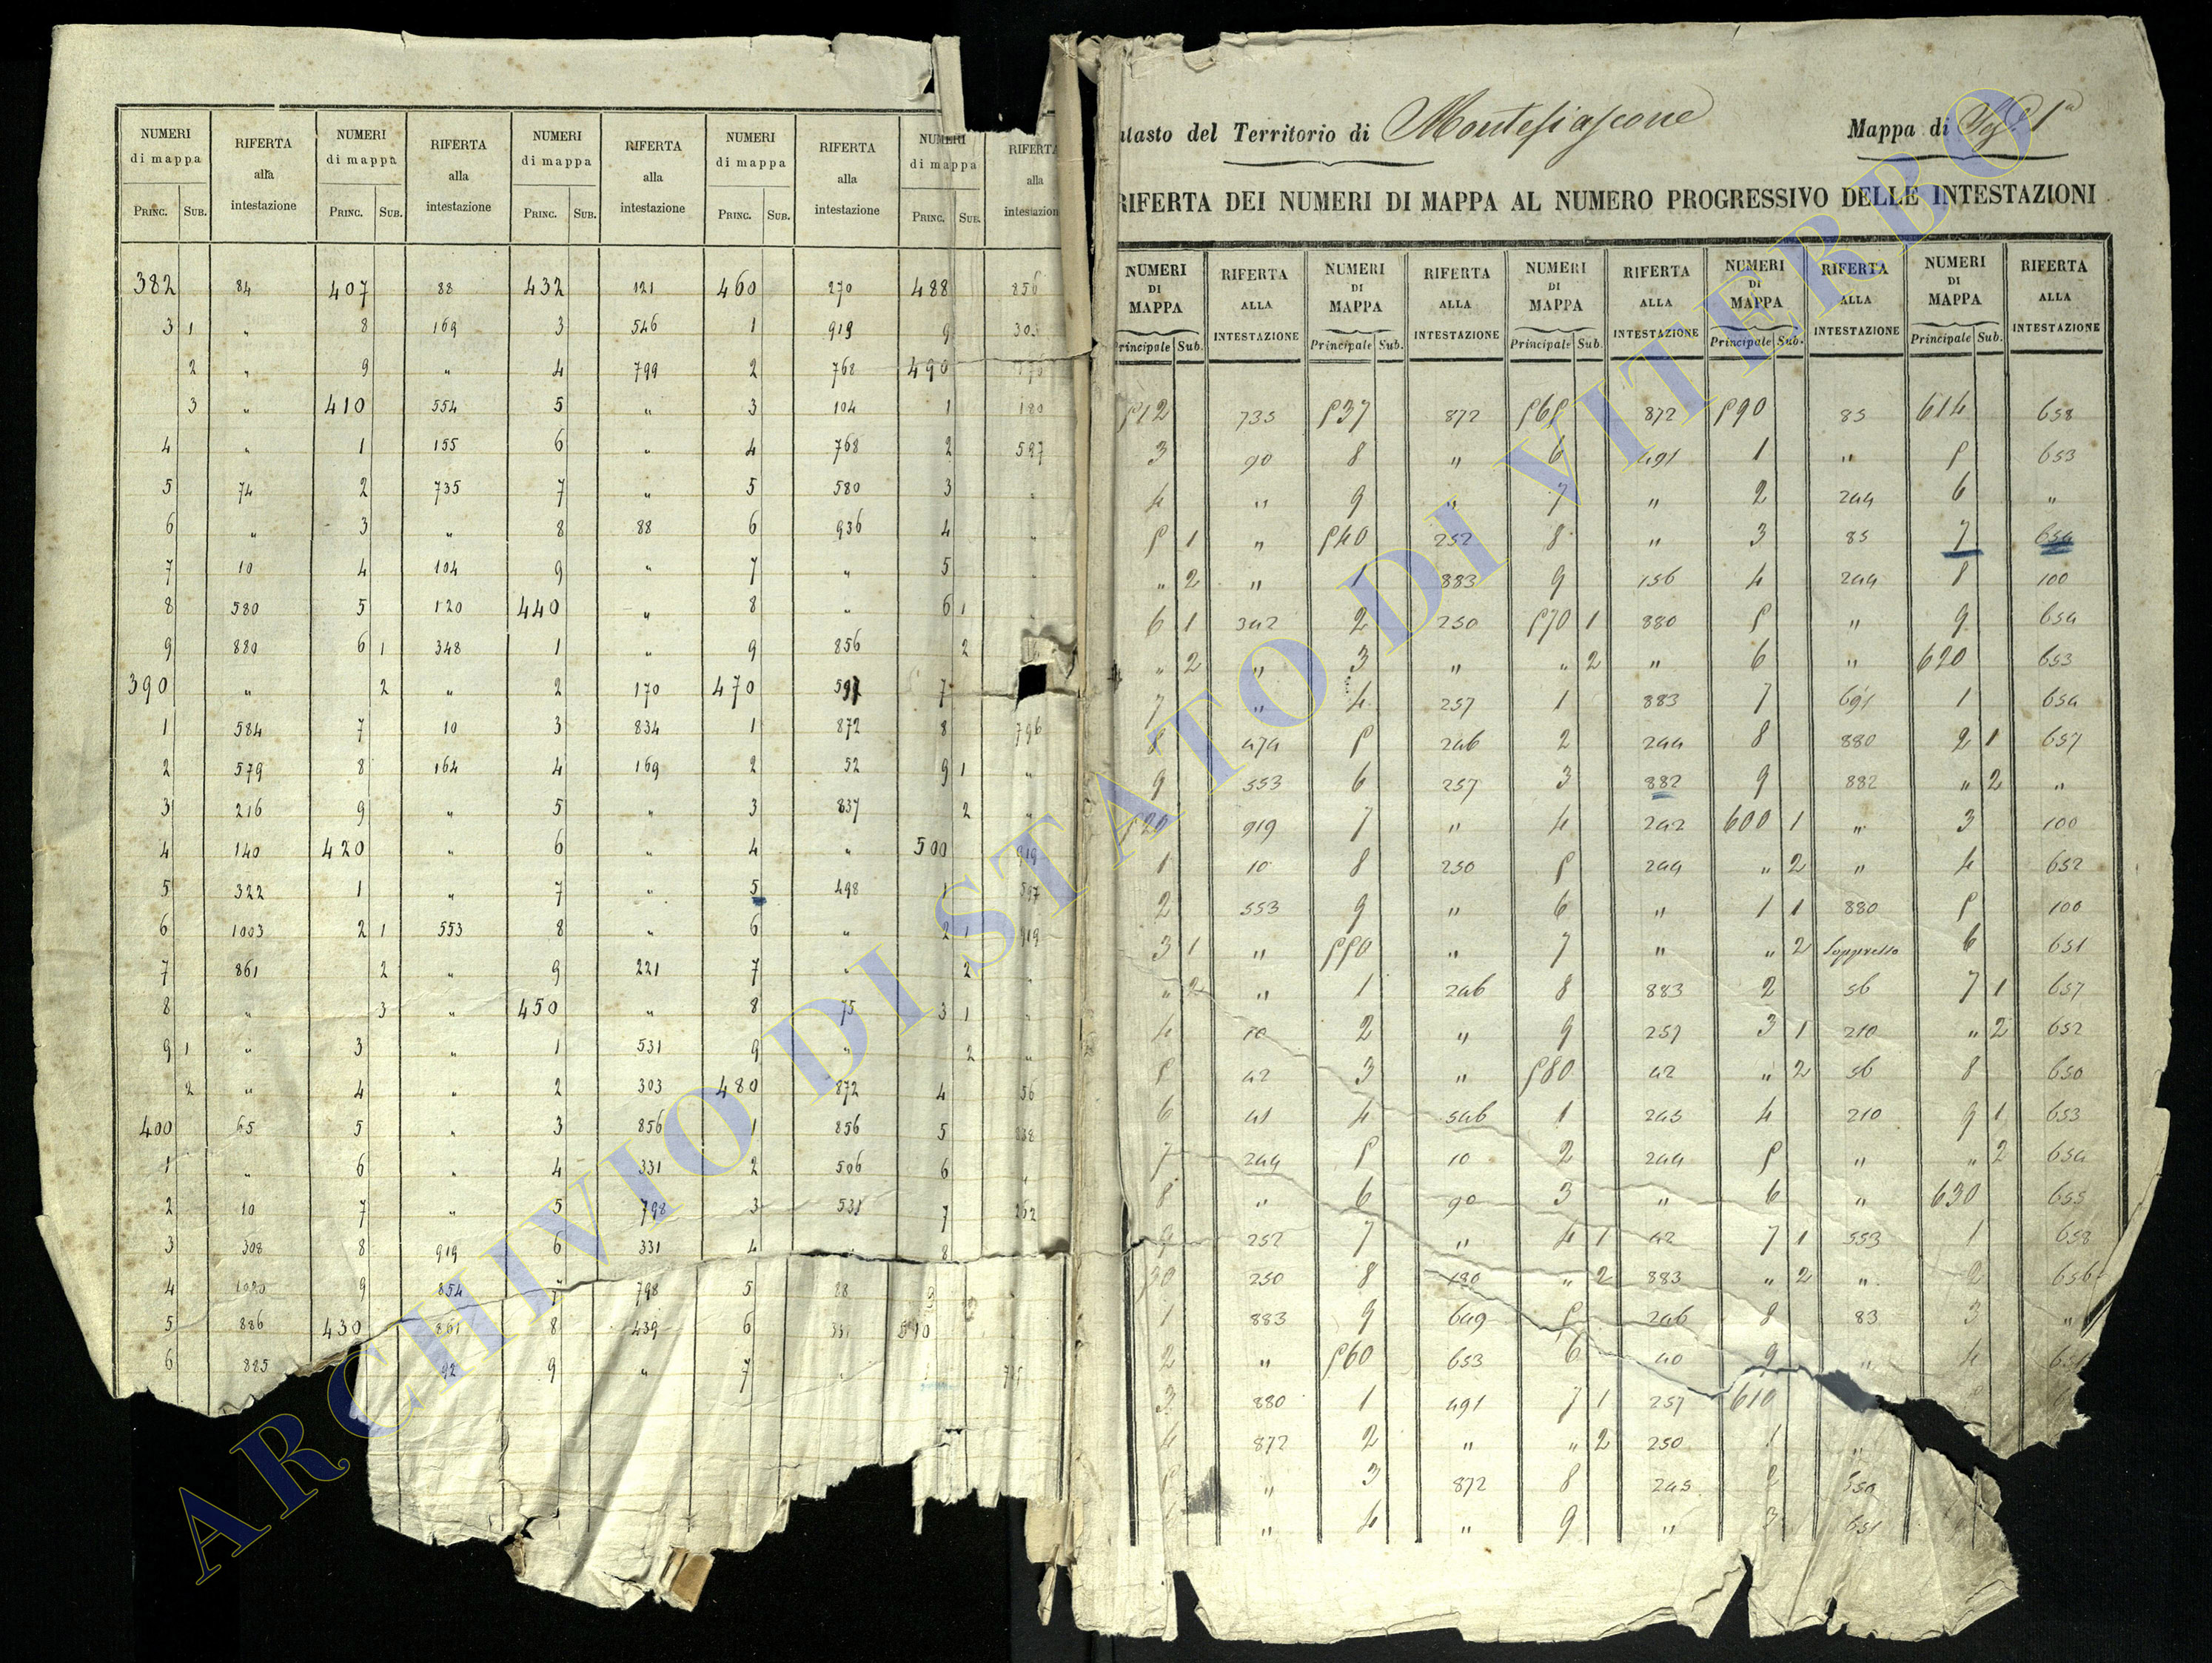 NUMERI di mappa RIFERTA alla intestazione NUMERI di mappa RIFERTA alla intestazione NUMERI di mappa RIFERTA alla intestazione NUMERI di mappa RIFERTA alla intestazione NUMERI di mappa RIFERTA alla intestazion
PRINC. SUB. PRINC. SUB. PRINC. SUB. PRINC. SUB. PRINC. SUB.
382 84 407 88 432 121 460 270 488 856
3 1 " 8 169 3 546 1 919 9 303
2 " 9 " 4 799 2 768 490
3 " 410 554 5 " 3 104 1 180
4 " 1 155 6 " 4 768 2 597
5 74 2 735 7 " 5 580 3 "
6 " 3 " 8 88 6 936 4 "
7 10 4 104 9 " 7 " 5 "
8 580 5 120 440 " 8 " 6 1 "
9 880 6 1 348 1 " 9 856 2
390 " 2 " 2 170 470 597 7
1 584 7 10 3 834 1 872 8 796
2 579 8 164 4 169 2 52 9 1 "
3 216 9 " 5 " 3 837 2 "
4 140 420 " 6 " 4 " 500 919
5 322 1 " 7 " 5 498 1 597
6 1003 2 1 553 8 " 6 " 2 1 919
7 861 2 " 9 221 7 " 2 "
8 " 3 " 450 " 8 75 3 1 "
9 1 " 3 " 1 531 9 " 2 "
2 " 4 " 2 303 480 872 4 56
400 65 5 " 3 856 1 856 5
1 " 6 " 4 331 2 506 6 "
2 10 7 " 5 798 3 531 7 262
3 308 8 919 6 331 4 " 8
4 1020 9 854 7 798 5 88 9
5 886 430 861 8 439 6 510
6 885 92 9 " 7 "
atasto del Territorio di Montefiascone Mappa di Sez. 1a
RIFERTA DEI NUMERI DI MAPPA AL NUMERO PROGRESSIVO DELLE INTESTAZIONI
NUMERI DI MAPPA RIFERTA ALLA INTESTAZIONE NUMERI DI MAPPA RIFERTA ALLA INTESTAZIONE NUMERI DI MAPPA RIFERTA ALLA INTESTAZIONE NUMERI DI MAPPA RIFERTA ALLA INTESTAZIONE NUMERI DI MAPPA RIFERTA ALLA INTESTAZIONE
Principale Sub. Principale Sub. Principale Sub. Principale Sub. Principale Sub.
512 735 537 872 565 872 590 85 614 658
3 90 8 " 6 491 1 " 5 653
4 " 9 " 7 " 2 244 6 "
5 1 " 540 252 8 " 3 85 7 654
" 2 " 1 883 9 156 4 244 8 100
6 1 342 2 250 570 1 880 5 " 9 654
" 2 " 3 " " 2 " 6 " 620 653
7 " 4 257 1 883 7 691 1 654
8 474 5 246 2 244 8 880 2 1 657
9 553 6 257 3 882 9 882 " 2 "
520 919 7 " 4 242 600 1 " 3 100
1 10 8 250 5 244 " 2 " 4 652
2 553 9 " 6 " 1 1 880 5 100
3 1 " 550 " 7 " " 2 Soppresso 6 651
" 2 " 1 246 8 883 2 56 7 1 657
4 10 2 " 9 257 3 1 210 " 2 652
5 42 3 " 580 42 " 2 56 8 650
6 41 4 546 1 245 4 210 9 1 653
7 244 5 10 2 244 5 " " 2 654
8 " 6 90 3 " 6 " 630 655
9 252 7 " 4 1 42 7 1 553 1 658
30 250 8 180 " 2 883 " 2 " 2 656
1 883 9 649 5 246 8 83 3 "
2 " 560 653 6 40 9 " 4
3 880 1 491 7 1 257 610
4 872 2 " " 2 250 1 "
5 " 3 872 8 245 2 550
" 4 " 9 " 3 651
ARCHIVIO DI STATO DI VITERBO